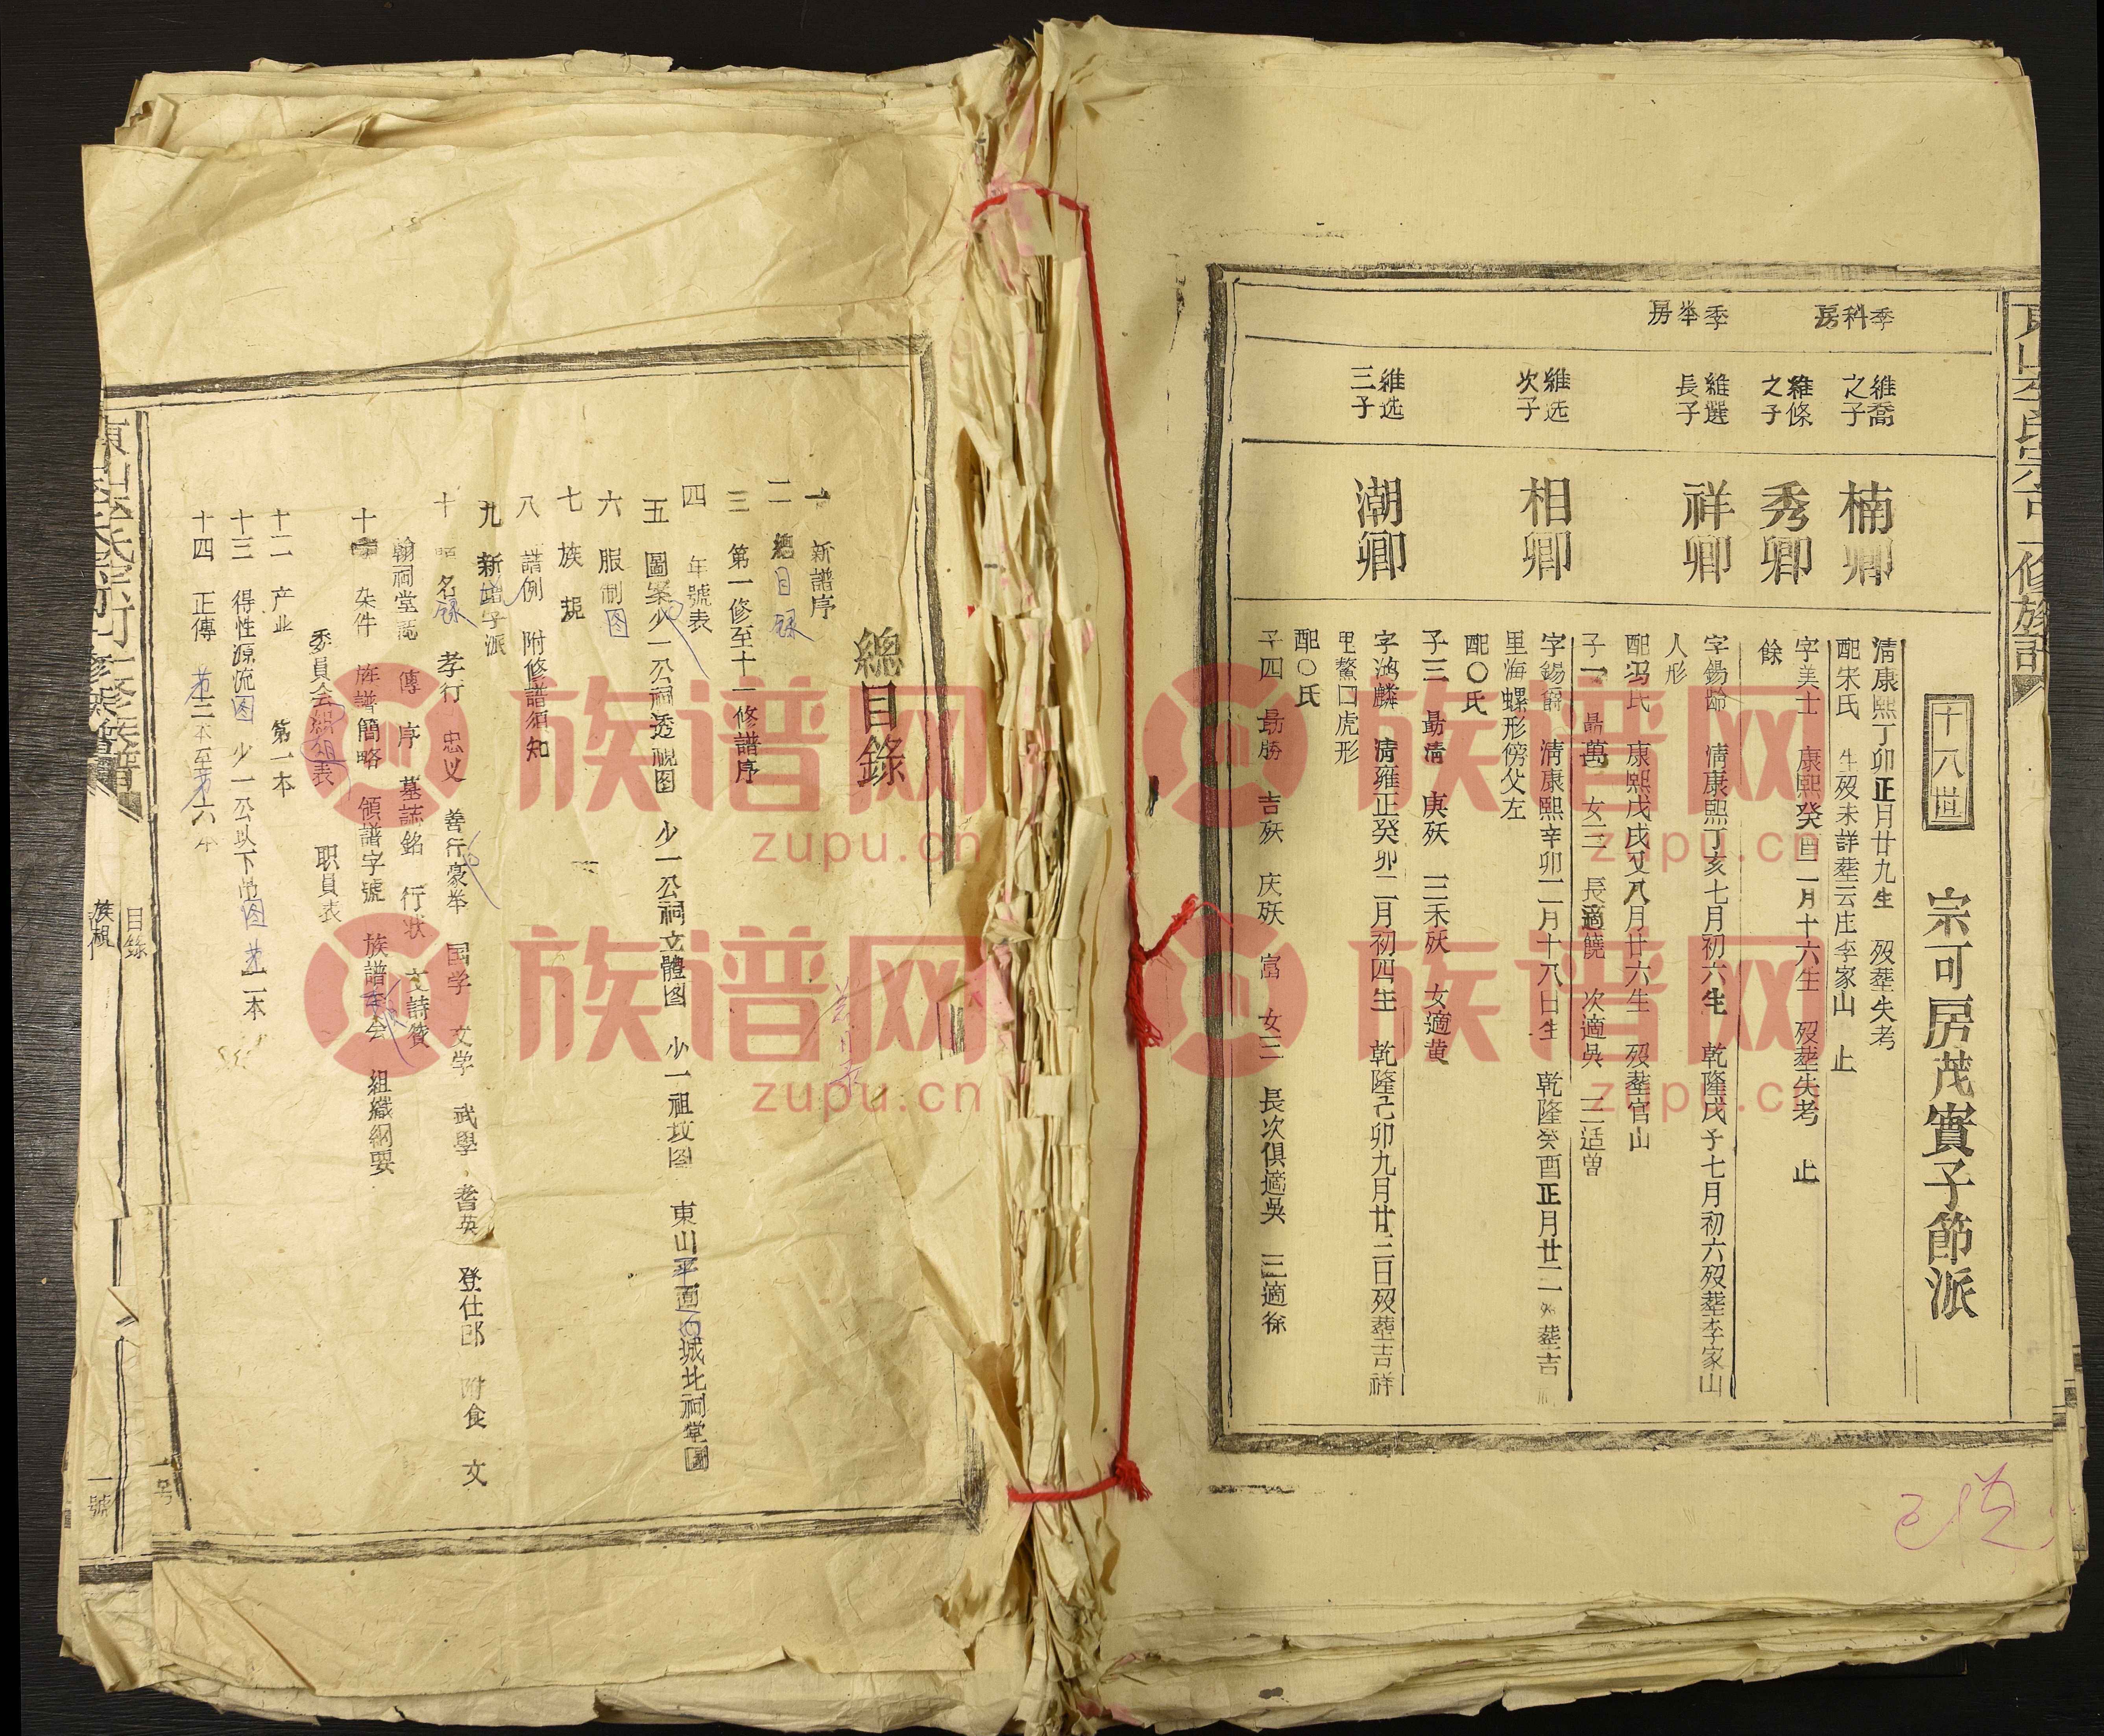 修族譜
十八世
宗可房茂實子節派
季科房
維喬之子
楠卿
清康熙丁卯正月廿九生 歿葬失考
配宋氏 生歿未詳葬云庄李家山 止
維條之子
秀卿
字美士 康熙癸酉一月十六生 歿葬失考 止
餘
季峯房
維選長子
祥卿
字錫齡 清康熙丁亥七月初六生 乾隆戊子七月初六歿葬李家山
人形
配冯氏 康熙戊戌又八月廿六生 歿葬官山
子一 勗萬 女三 長適饒 次適吳 三适曾
維选次子
相卿
字錫爵 清康熙辛卯二月十八日生 乾隆癸酉正月廿二 葬吉
里海螺形傍父左
配〇氏
子三 勗清 庚殀 三禾殀 女適黄
維选三子
潮卿
字鴻麟 清雍正癸卯二月初四生 乾隆己卯九月廿三日歿葬吉祥
里鰲口虎形
配〇氏
子四 勗勝 吉殀 庆殀 富 女三 長次俱適吳 三適徐
已送
總目錄
一 新譜序
二 總目録
三 第一修至十一修譜序
四 年號表
五 圖案少一公祠透視图 少一公祠立體图 少一祖坟图 東山平面 城北祠堂圖
六 服制图
七 族規
八 譜例 附修譜須知
九 新增字派
十 名録 孝行 忠义 善行豪举 国学 文学 武學 耆英 登仕郎 附食 文
翰祠堂記 傳 序 墓誌銘 行状 文詩赞
十一 杂件 族譜簡略 領譜字號 族譜 会 組織綱要
委員会 組表 职員表
十二 产业 第一本
十三 得性源流图 少一公以下吊图 第二本
十四 正傳 第三本至第六本
目錄
族規
一號
一号
族谱网
zupu.cn
族谱网
zupu.cn
族谱网
zupu.cn
族谱网
zupu.cn